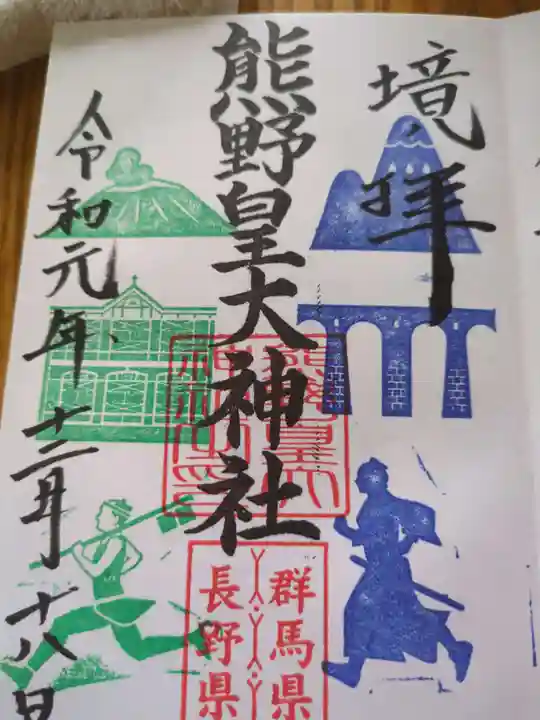 境拝
熊野皇大神社
群馬県
長野県
令和元年十二月十八日